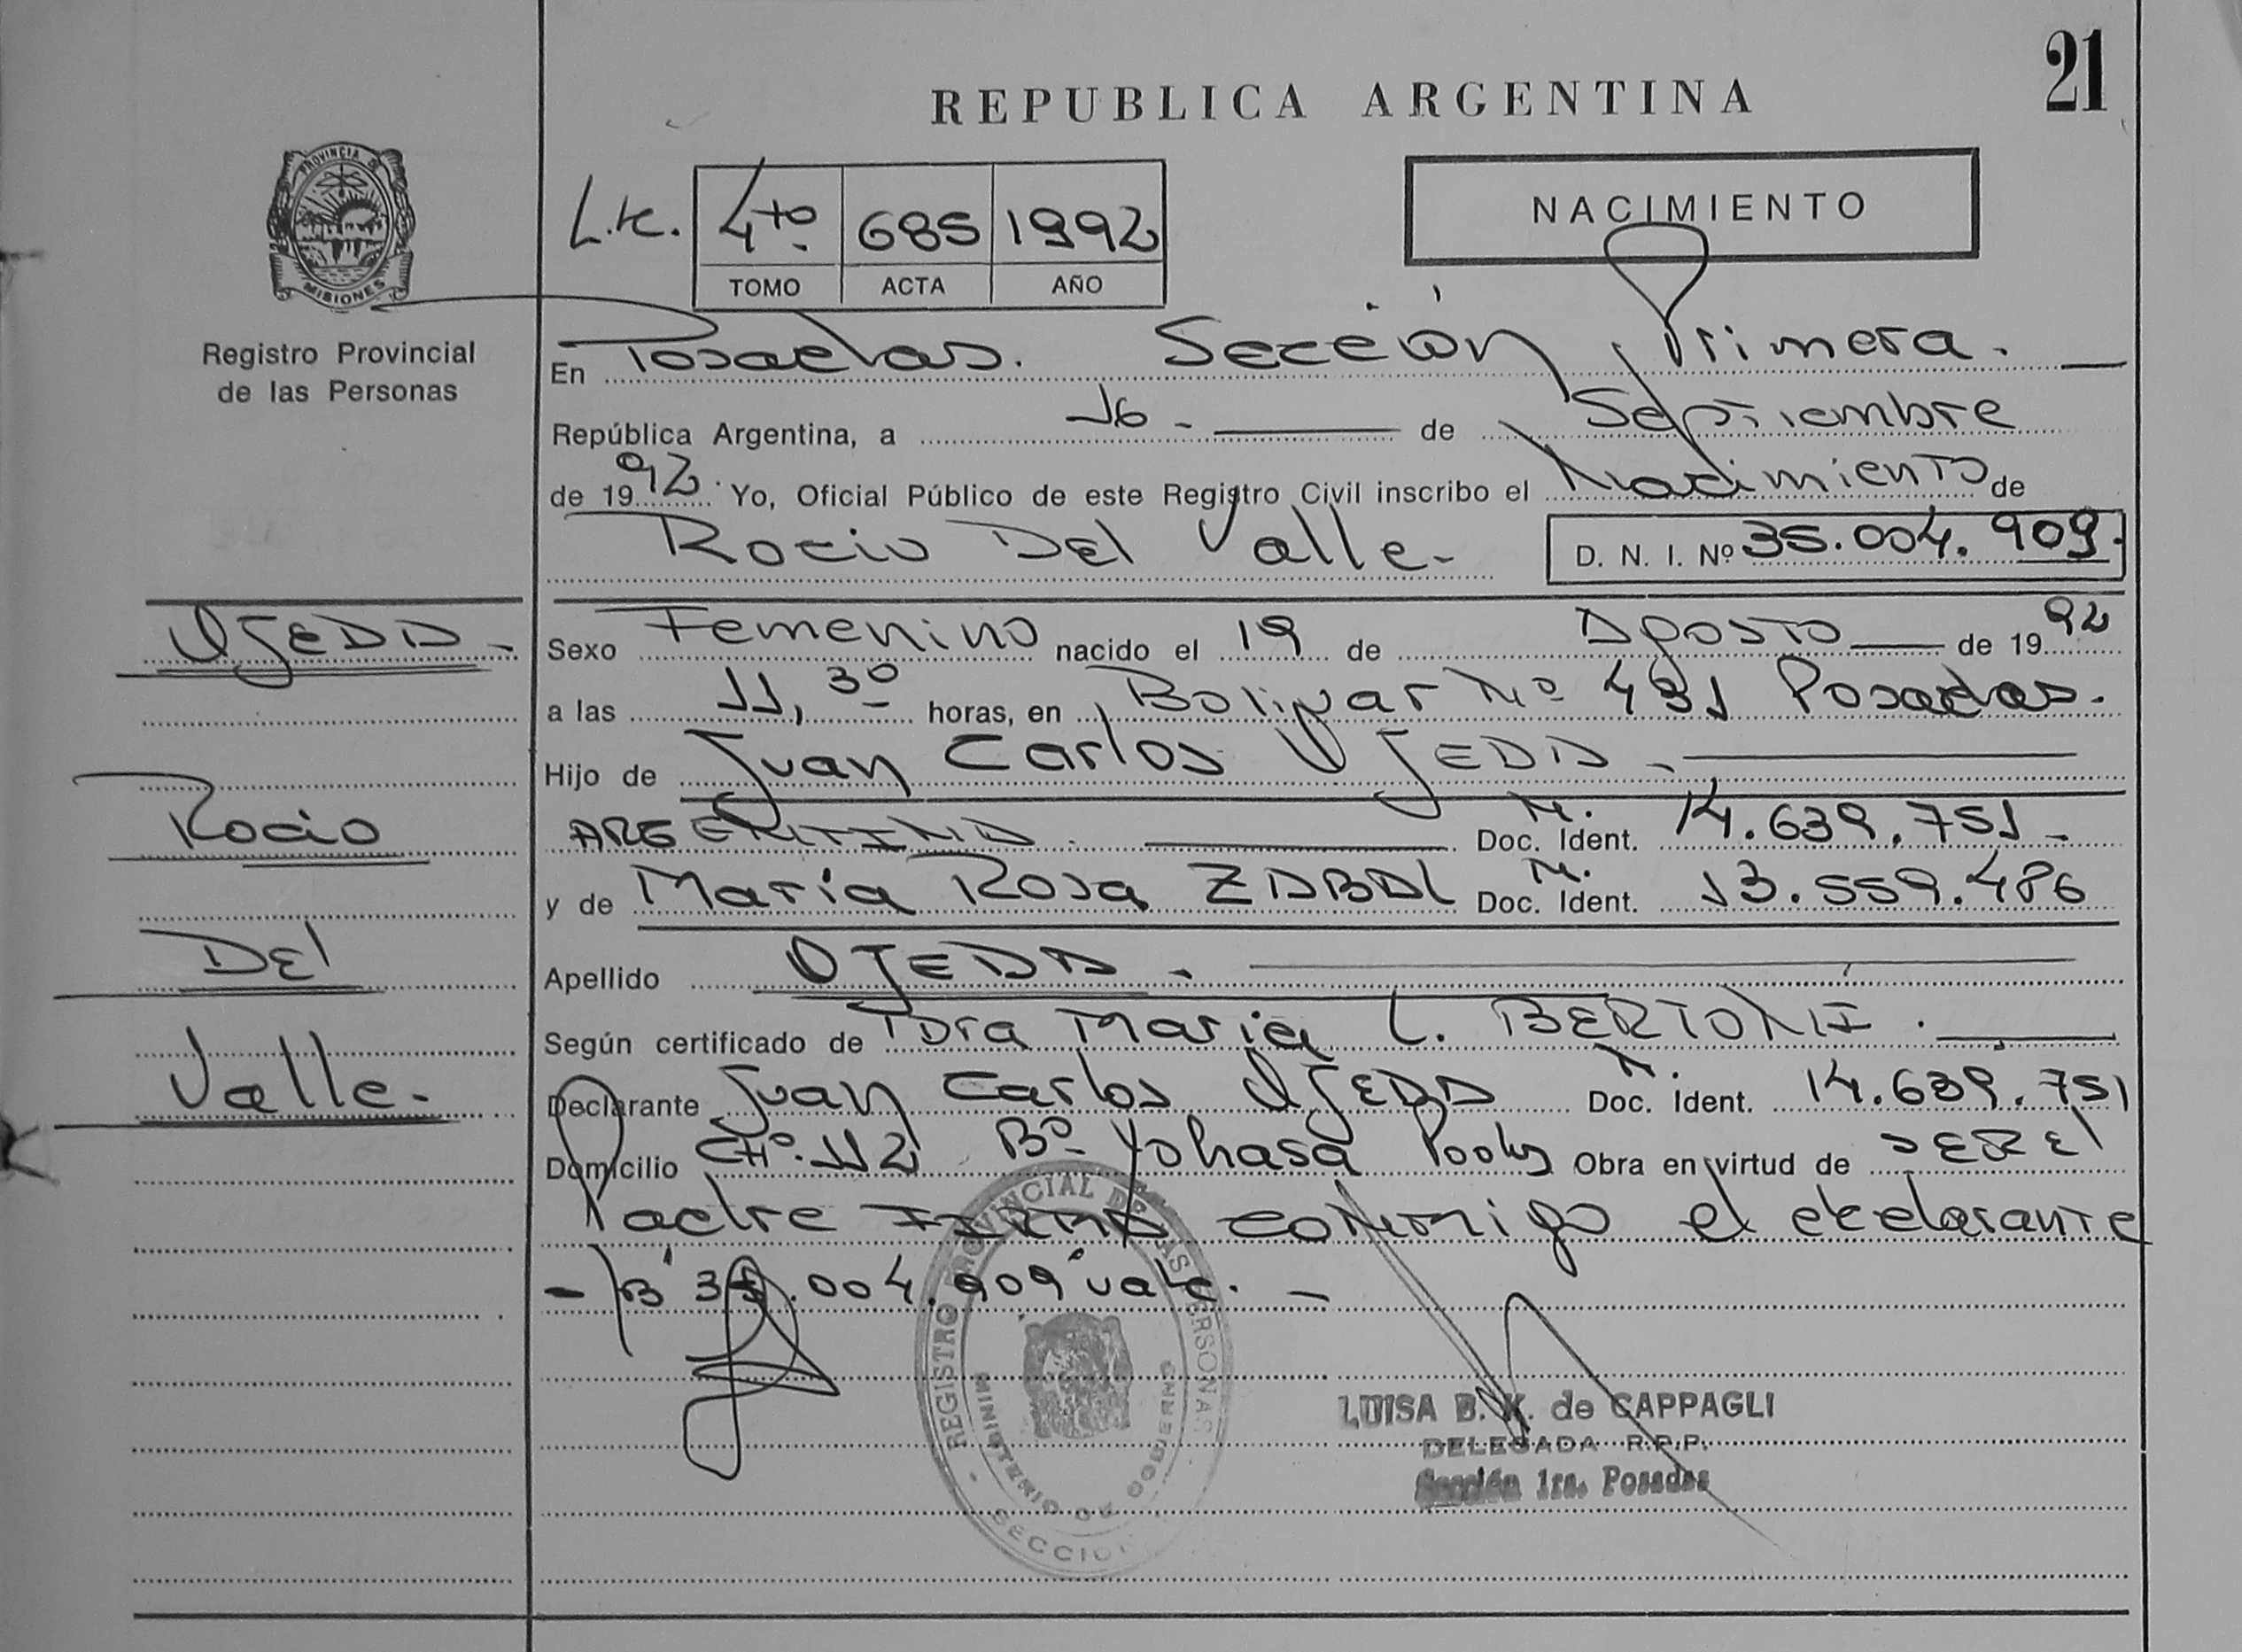 REPUBLICA ARGENTINA
21
PROVINCIA DE
MISIONES
Registro Provincial
de las Personas
L.c. 4to. 685 1992
TOMO ACTA AÑO
NACIMIENTO
En Posadas. Sección Primera.
República Argentina, a 16 - de Septiembre
de 1992. Yo, Oficial Público de este Registro Civil inscribo el Nacimiento de
Rocio Del Valle - D. N. I. Nº 35.004.909.
OJEDA -
Rocio
Del
Valle -
Sexo Femenino nacido el 19 de Agosto de 1992
a las 11,30 horas, en Bolivar Nº 491 Posadas.
Hijo de Juan Carlos OJEDA -
ARGENTINA. Doc. Ident. M. 14.639.751 -
y de María Rosa ZABAL Doc. Ident. M. 13.559.486
Apellido OJEDA -
Según certificado de Dra Maria L. BERTONI.
Declarante Juan Carlos OJEDA Doc. Ident. M. 14.639.751
Domicilio CHº. 112 Bº Yohasá Obra en virtud de SER El
Padre FIRMA conmigo el declarante
35.004.909 vale. -
REGISTRO PROVINCIAL DE LAS PERSONAS
MINISTERIO DE GOBIERNO
SECCION
LUISA B. K. de CAPPAGLI
DELEGADA R.P.P.
Sección 1ra. Posadas